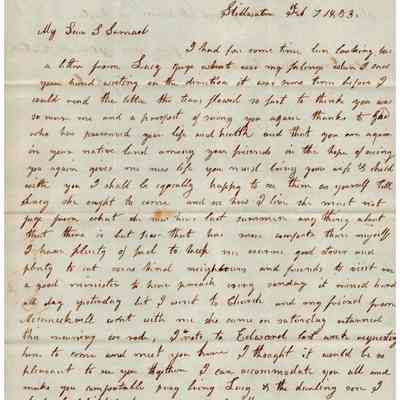 Stillwater Feb 7 1853.
My Dear S Samuel
I had for some time been looking for
a letter from Lucy judge what was my feelings when I once
your hand writing on the direction it was some time before I
could read the letter the tears flowed so fast to think you was
so near me and a prospect of seeing you again thanks to God
who has preserved your life and health and that you are again
in your native land among your friends in the hope of seeing
you again gives me new life you must bring your wife & child
with you I shall be equally happy to see them as yourself tell
Lucy she ought to come and see how I live she must not
judge from what she see here last summer any thing about
that there is but few that has more comforts than myself
I have plenty of fuel to keep me warm good stoves and
plenty to eat some kind neighbours and friends to visit me
a good minister to hear preach every sunday it rained hard
all day yesterday but I went to Church and my friend from
Mechanicville went with me she came on saturday returned
this morning we rode, I wrote to Edward last week requesting
him to come and meet you here I thought it would be so
pleasant to see you together I can accommodate you all and
make you comfortable pray bring Lucy & the darling son I